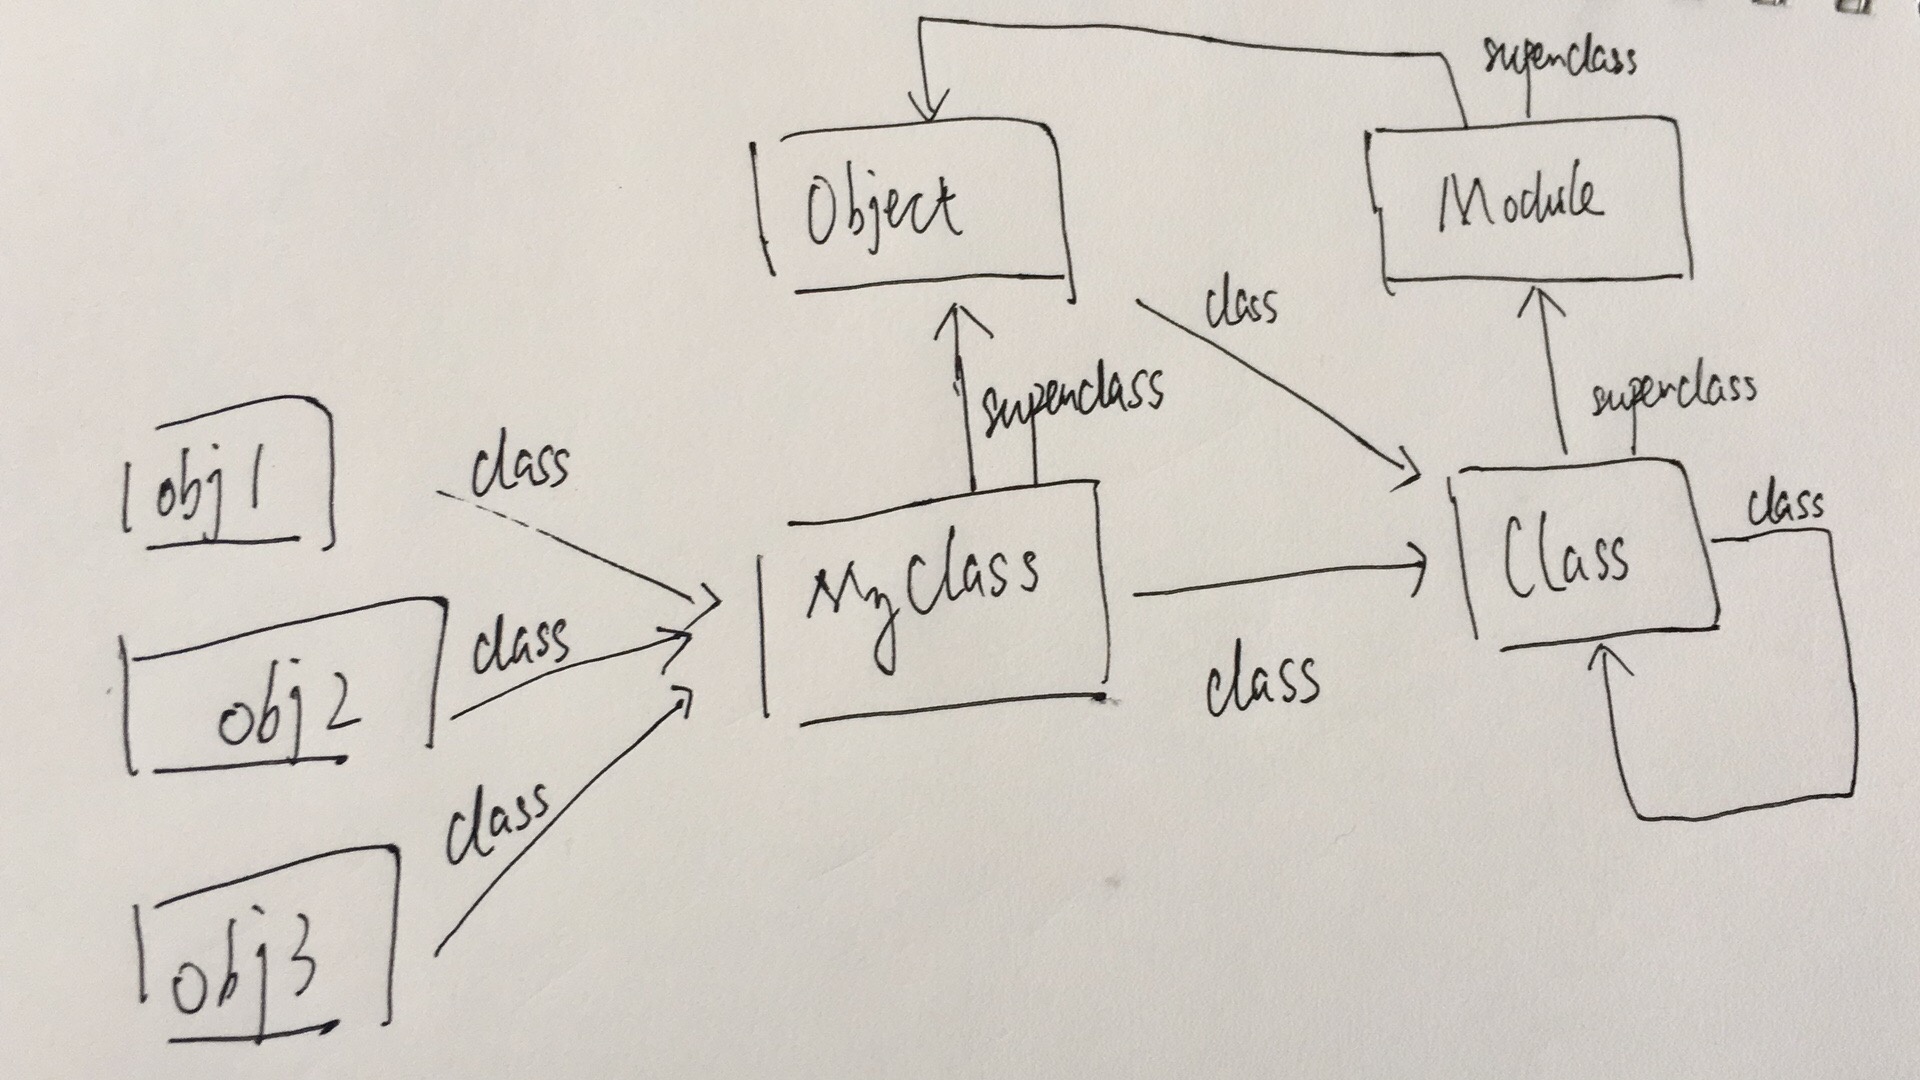 superclass
Object
Module
class
superclass
superclass
class
obj1
class
MyClass
Class
class
obj2
class
class
obj3
class